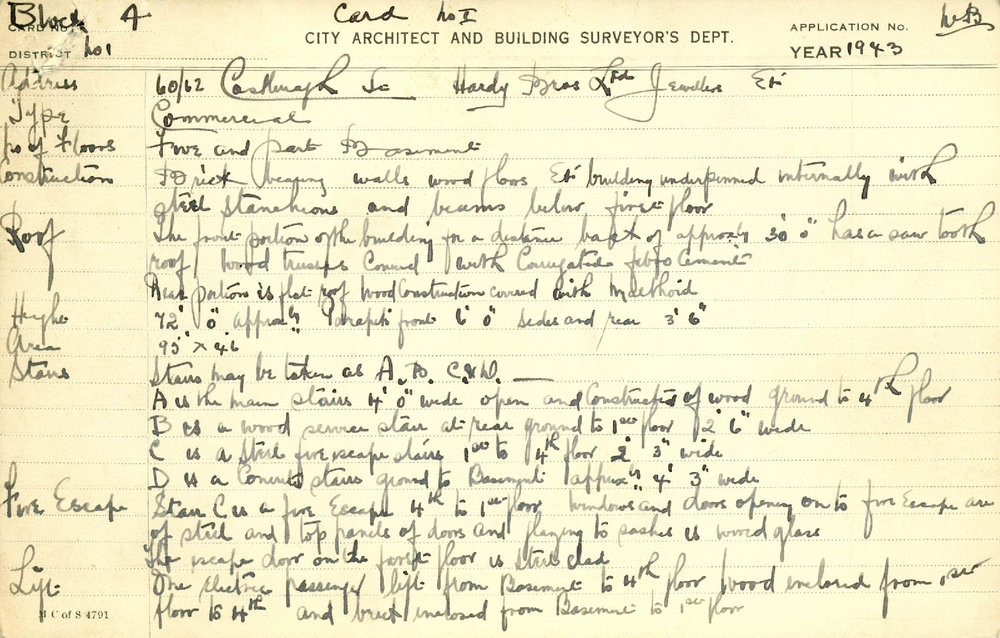 Block A Card No I
CARD No. CITY ARCHITECT AND BUILDING SURVEYOR'S DEPT. APPLICATION No.
DISTRICT No 1 YEAR 1943
Address 60/62 Castlereagh St Hardy Bros Ltd Jewellers Etc
Type Commercial
No of Floors Five and part Basement
Construction Brick bearing walls wood floors Etc building underpinned internally with
steel stanchions and beams below first floor
Roof The front portion of the building for a distance back of approxly 30' 0" has a saw tooth
roof wood trusses Covered with Corrugated fibro Cement
Rear portion is flat roof wood Construction covered with Malthoid
Height 72' 0" approxly Parapets front 6' 0" sides and rear 3' 6"
Area 95' x 46
Stairs Stairs may be taken as A. B. C. & D.
A is the main stairs 4' 0" wide open and Constructed of wood ground to 4th floor
B is a wood service stair at rear ground to 1st floor 2' 6" wide
C is a Steel fire escape stairs 1st to 4th floor 2' 3" wide
D is a Concrete stairs ground to Basement approxly 4' 3" wide
Fire Escape Stair C is a fire Escape 4th to 1st floor Windows and doors opening on to fire Escape are
of steel and top panels of doors and glazing to sashes is wired glass
The escape door on the first floor is Steel clad
Lift One electric passenger lift from Basement to 4th floor wood enclosed from 1st
floor to 4th and brick enclosed from Basement to 1st floor
M C of S 4791